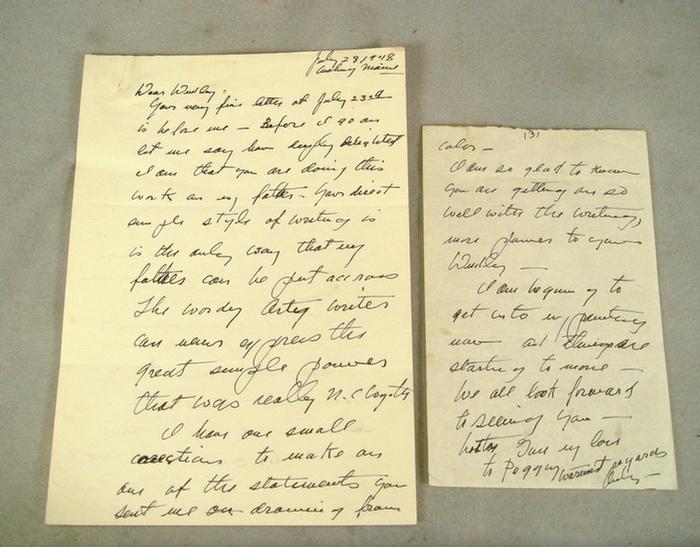 July 28 1948
Cushing Maine
Dear Weekley:
Your very fine letter of July 23rd
is before me — Before I go on
let me say how deeply delighted
I am that you are doing this
work on my father. Your direct
simple style of writing is
is the only way that my
father can be put across
The wordy Arty writer
can never express the
great simple power
that was really N.C. Wyeth
I have one small
corrections to make on
one of the statements you
sent me on drawing from
(3)
color —
I am so glad to know
you are getting on so
well with the writing,
more power to you
Weekley —
I am beginning to
get into my painting
now and things are
starting to move —
We all look forward
to seeing you —
Give my love
to Peggy warmest regards
Andy —